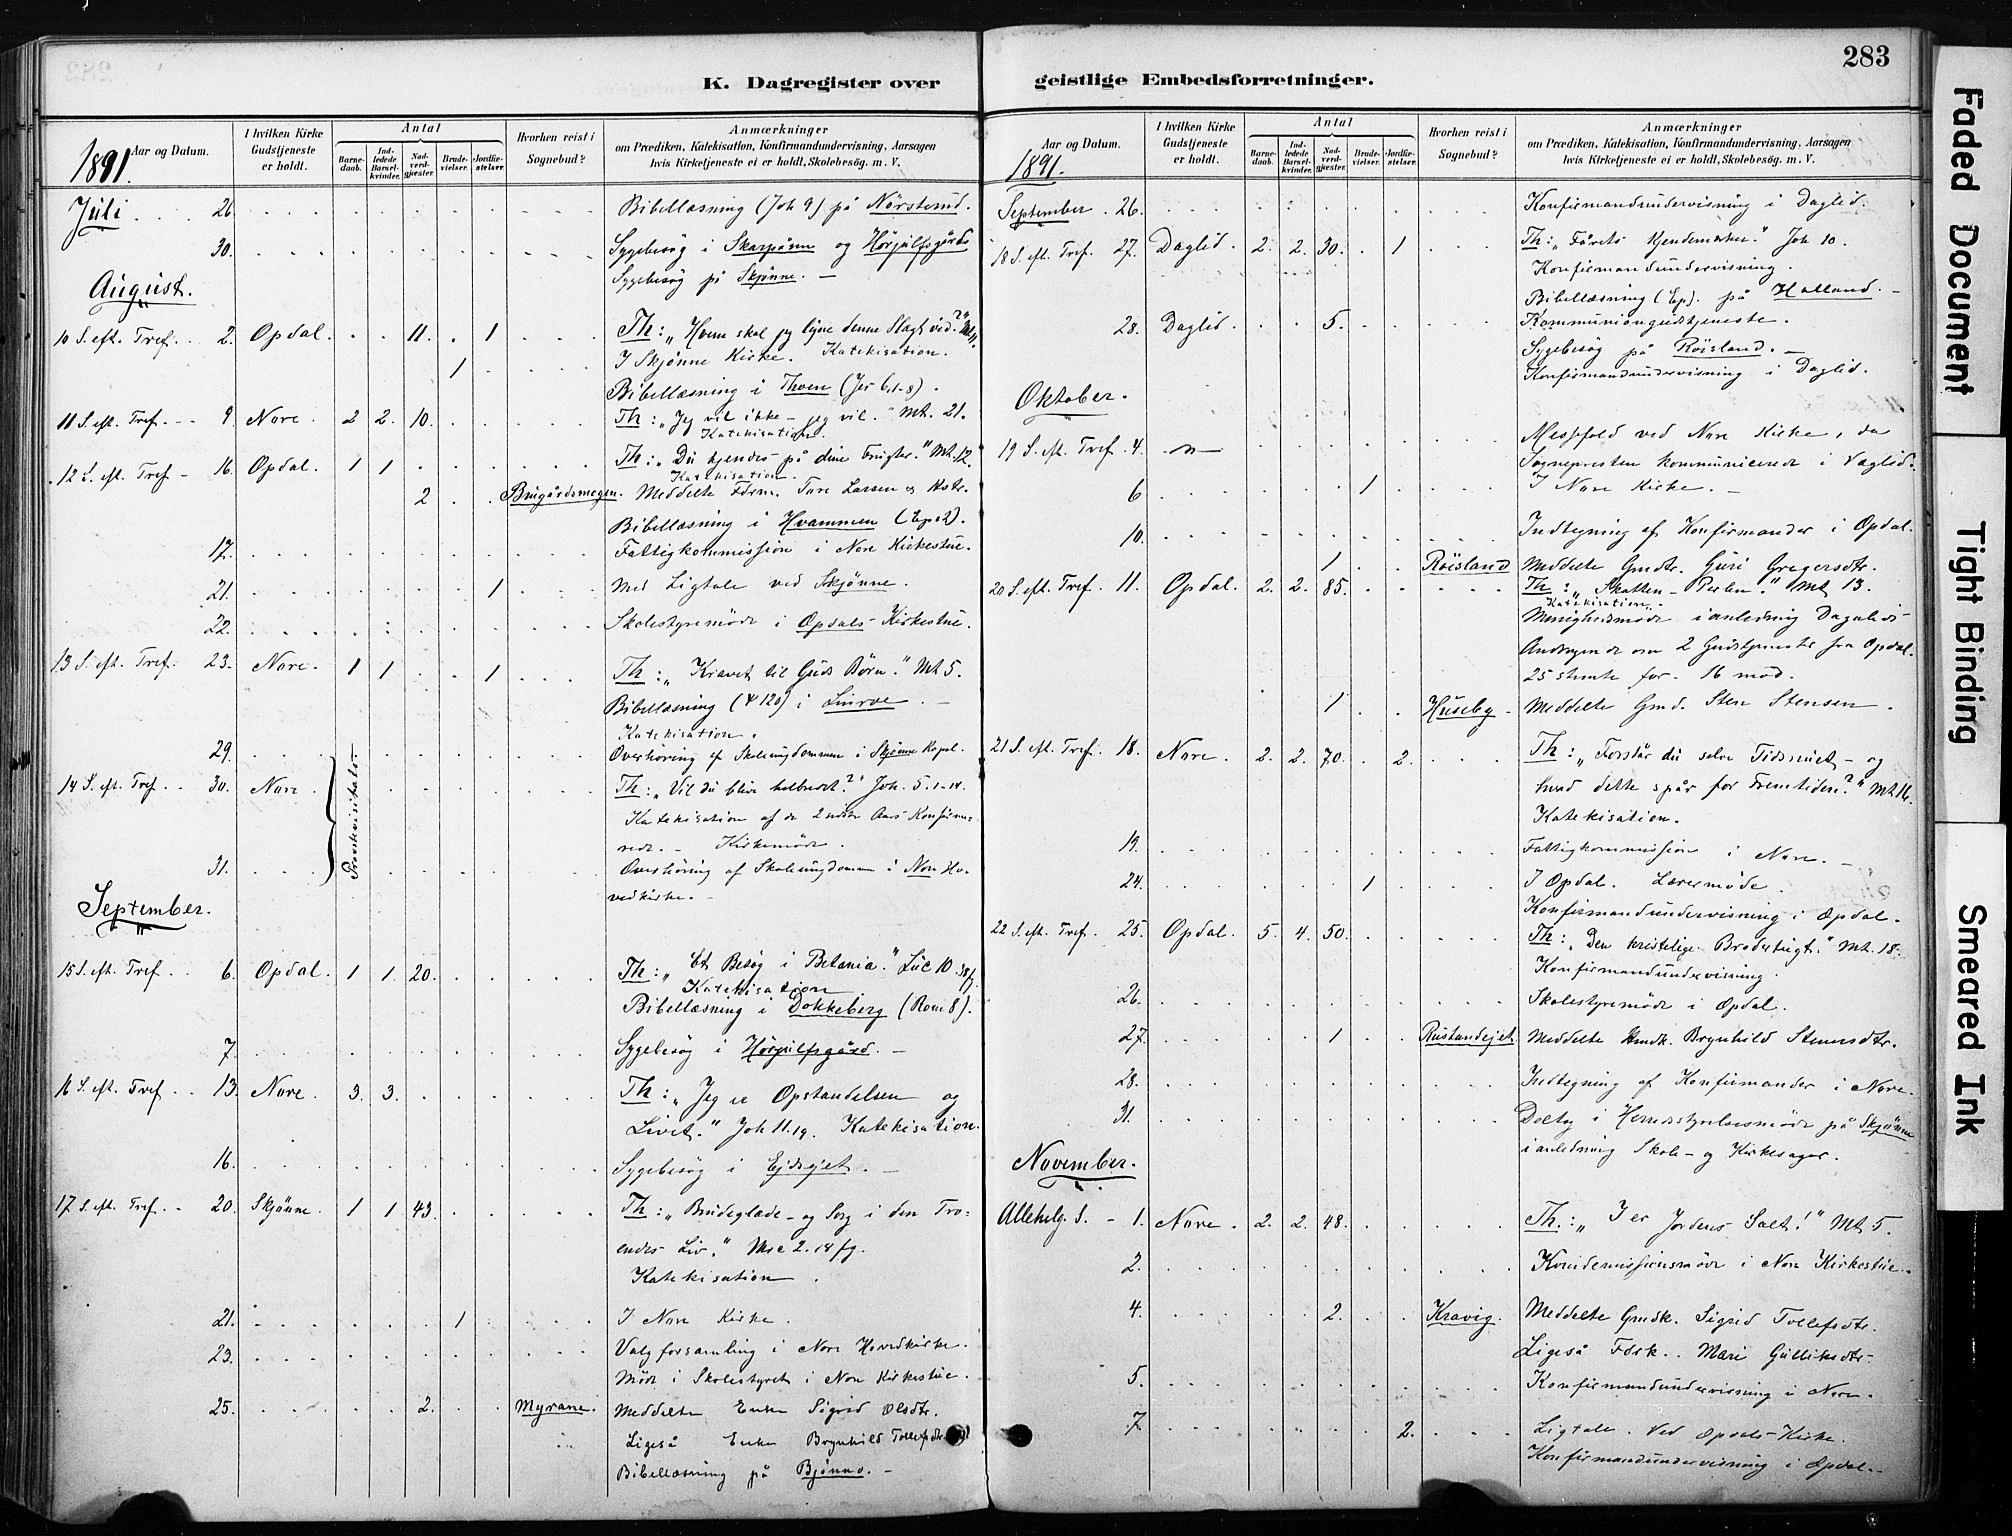 283
K. Dagregister over
geistlige Embedsforretninger.
Aar og Datum.
I hvilken Kirke Gudstjeneste er holdt.
Antal
Barnedaab.
Indledede Barselkvinder.
Nadverdgjæster.
Brudevielser.
Jordfæstelser.
Hvorhen reist i Sognebud?
Anmærkninger
om Prædiken, Katekisation, Konfirmandundervisning, Aarsagen
hvis Kirketjeneste ei er holdt, Skolebesøg. m. V.
1891.
Juli 26. Bibellæsning (Joh 9) på Nörsterud.
30. Sygebesög i Skarpåsen og Hörjulfsgårds
Sygebesög på Skjönne. —
August.
10 S. eft. Tref. 2. Opdal. 11. 1 Th: „Hvem skal jeg ligne denne Slagt ved?"
1 I Skjönne Kirke. Katekisation.
Bibellæsning i Thoen (Jer 6,1-8).
11 S. eft. Tref. 9 Nore. 2 2. 10. Th: „Jeg vil ikke – jeg vil." Mt. 21.
Katekisation.
12 S. eft. Tref. 16. Opdal. 1 1 Th: „Du kjendes på dine Frugter." Mt. 12.
Katekisation.
2 Meddelte Form. Tore Larsen
Bibellæsning i Hvammen
17. Fattigkommission i Nore Kirkestue.
21. 1 Med Ligtale ved Skjönne.
22. Skolestyremöde i Opdals Kirkestue.
13 S. eft. Tref. 23. Nore. 1 1 1 Th: „Kravet til Guds Börn." Mt 5.
Bibellæsning (Ψ 120) i
Katekisation.
29. Overhöring af Skoleungdommen i Skjönne Kapel.
Provstevisitats
14 S. eft. Tref. 30. Nore Th: „Vil du blive helbredt?" Joh. 5.1-14.
Katekisation af de 2 sidste Aars Konfirme-
rede. – Kirkemöde.
31. Overhöring af Skoleungdommen i Nore Ho-
vedkirke. —
September.
15 S. eft. Tref. 6. Opdal. 1 1. 20. Th: „Et Besög i Betania." Luc 10.38f.
Katekisation
Bibellæsning i Dokkeberg (Rom 8).
7. Sygebesög i Hörjulfsgård. —
16 S. eft. Tref. 13. Nore. 3. 3. Th: „Jeg er Opstandelsen og
Livet." Joh 11.19. Katekisation.
16. Sygebesög i Ejdsejet. —
17 S. eft. Tref. 20. Skjönne 1 1 43. Th: „Brudeglæde – og Sorg i den Tro-
endes Liv." Mrc 2.18 fg.
Katekisation.
21. 1 I Nore Kirke.
23. Valgforsamling i Nore Hovedkirke.
Möde i Skolestyret i Nore Kirkestue.
25. 2. Myrane. Meddelte Enke Sigrid Olsdtr.
Ligeså Enke Brynhild Tollefsdtr.
Bibellæsning på Bjönno. —
Aar og Datum.
I hvilken Kirke Gudstjeneste er holdt.
Antal
Barnedaab.
Indledede Barselkvinder.
Nadverdgjæster.
Brudevielser.
Jordfæstelser.
Hvorhen reist i Sognebud?
Anmærkninger
om Prædiken, Katekisation, Konfirmandundervisning, Aarsagen
hvis Kirketjeneste ei er holdt, Skolebesøg. m. V.
1891.
September. 26. Konfirmandundervisning i Daglid.
18 S. eft. Tref. 27. Daglid. 2. 2. 30. 1 Th: „Fårets Kjendemærker." Joh 10.
Konfirmandundervisning.
Bibellæsning på Halland. —
28. Daglid. 5. Kommuniongudstjeneste.
Sygebesög på Röisland. —
Konfirmandundervisning i Daglid.
Oktober.
19 S. eft. Tref. 4. Messefald ved Nore Kirke, da
Sognepresten kommunicerede i Væglid.
6 1 I Nore Kirke. —
10. Indtegning af Konfirmander i Opdal.
1 Röisland Meddelte Gmdtr. Guri Gregersdtr.
20 S. eft. Tref. 11. Opdal. 2. 2. 85. Th: „Skatten – Perlen." Mt 13.
Katekisation.
Menighedsmöde i anledning Dagalids
Andragende om 2 Gudstjenester fra Opdal.
25 stemte for. 16 mod.
1 Huseby. Meddelte Gmd. Sten Stensen.
21 S. eft. Tref. 18. Nore. 2. 2. 70. 2. Th: „Forstår du selve Tidsnuet – og
hvad dette spår for Fremtiden?" Mt. 16.
Katekisation.
19. Fattigkommission i Nore. —
24. 1 I Opdal. Lærermöde.
Konfirmandundervisning i Opdal.
22 S. eft. Tref. 25. Opdal. 5. 4. 50. Th: „Den kristelige Brodertugt." Mt. 18.
Konfirmandundervisning.
26. Skolestyremöde i Opdal.
27. 1 Rustandejet Meddelte Brynhild Stenersdtr.
28. Indtegning af Konfirmander i Nore.
31. Deltog i Herredsstyrelsesmöde på Skjönne
i anledning Skole – og Kirkesager.
November.
Allehelg. S. – 1. Nore. 2. 2. 48. Th: „I er Jordens Salt!" Mt 5.
2. Kommissionsmöde i Nore Kirkestue.
4. 2. Kravig. Meddelte Gmdk. Sigrid Tollefsdtr.
Ligeså Mari Gulliksdtr.
5. Konfirmandundervisning i Nore.
7. 2. Ligtale. Ved Opdals Kirke.
Konfirmandundervisning i Opdal. —
Faded Document
Tight Binding
Smeared Ink